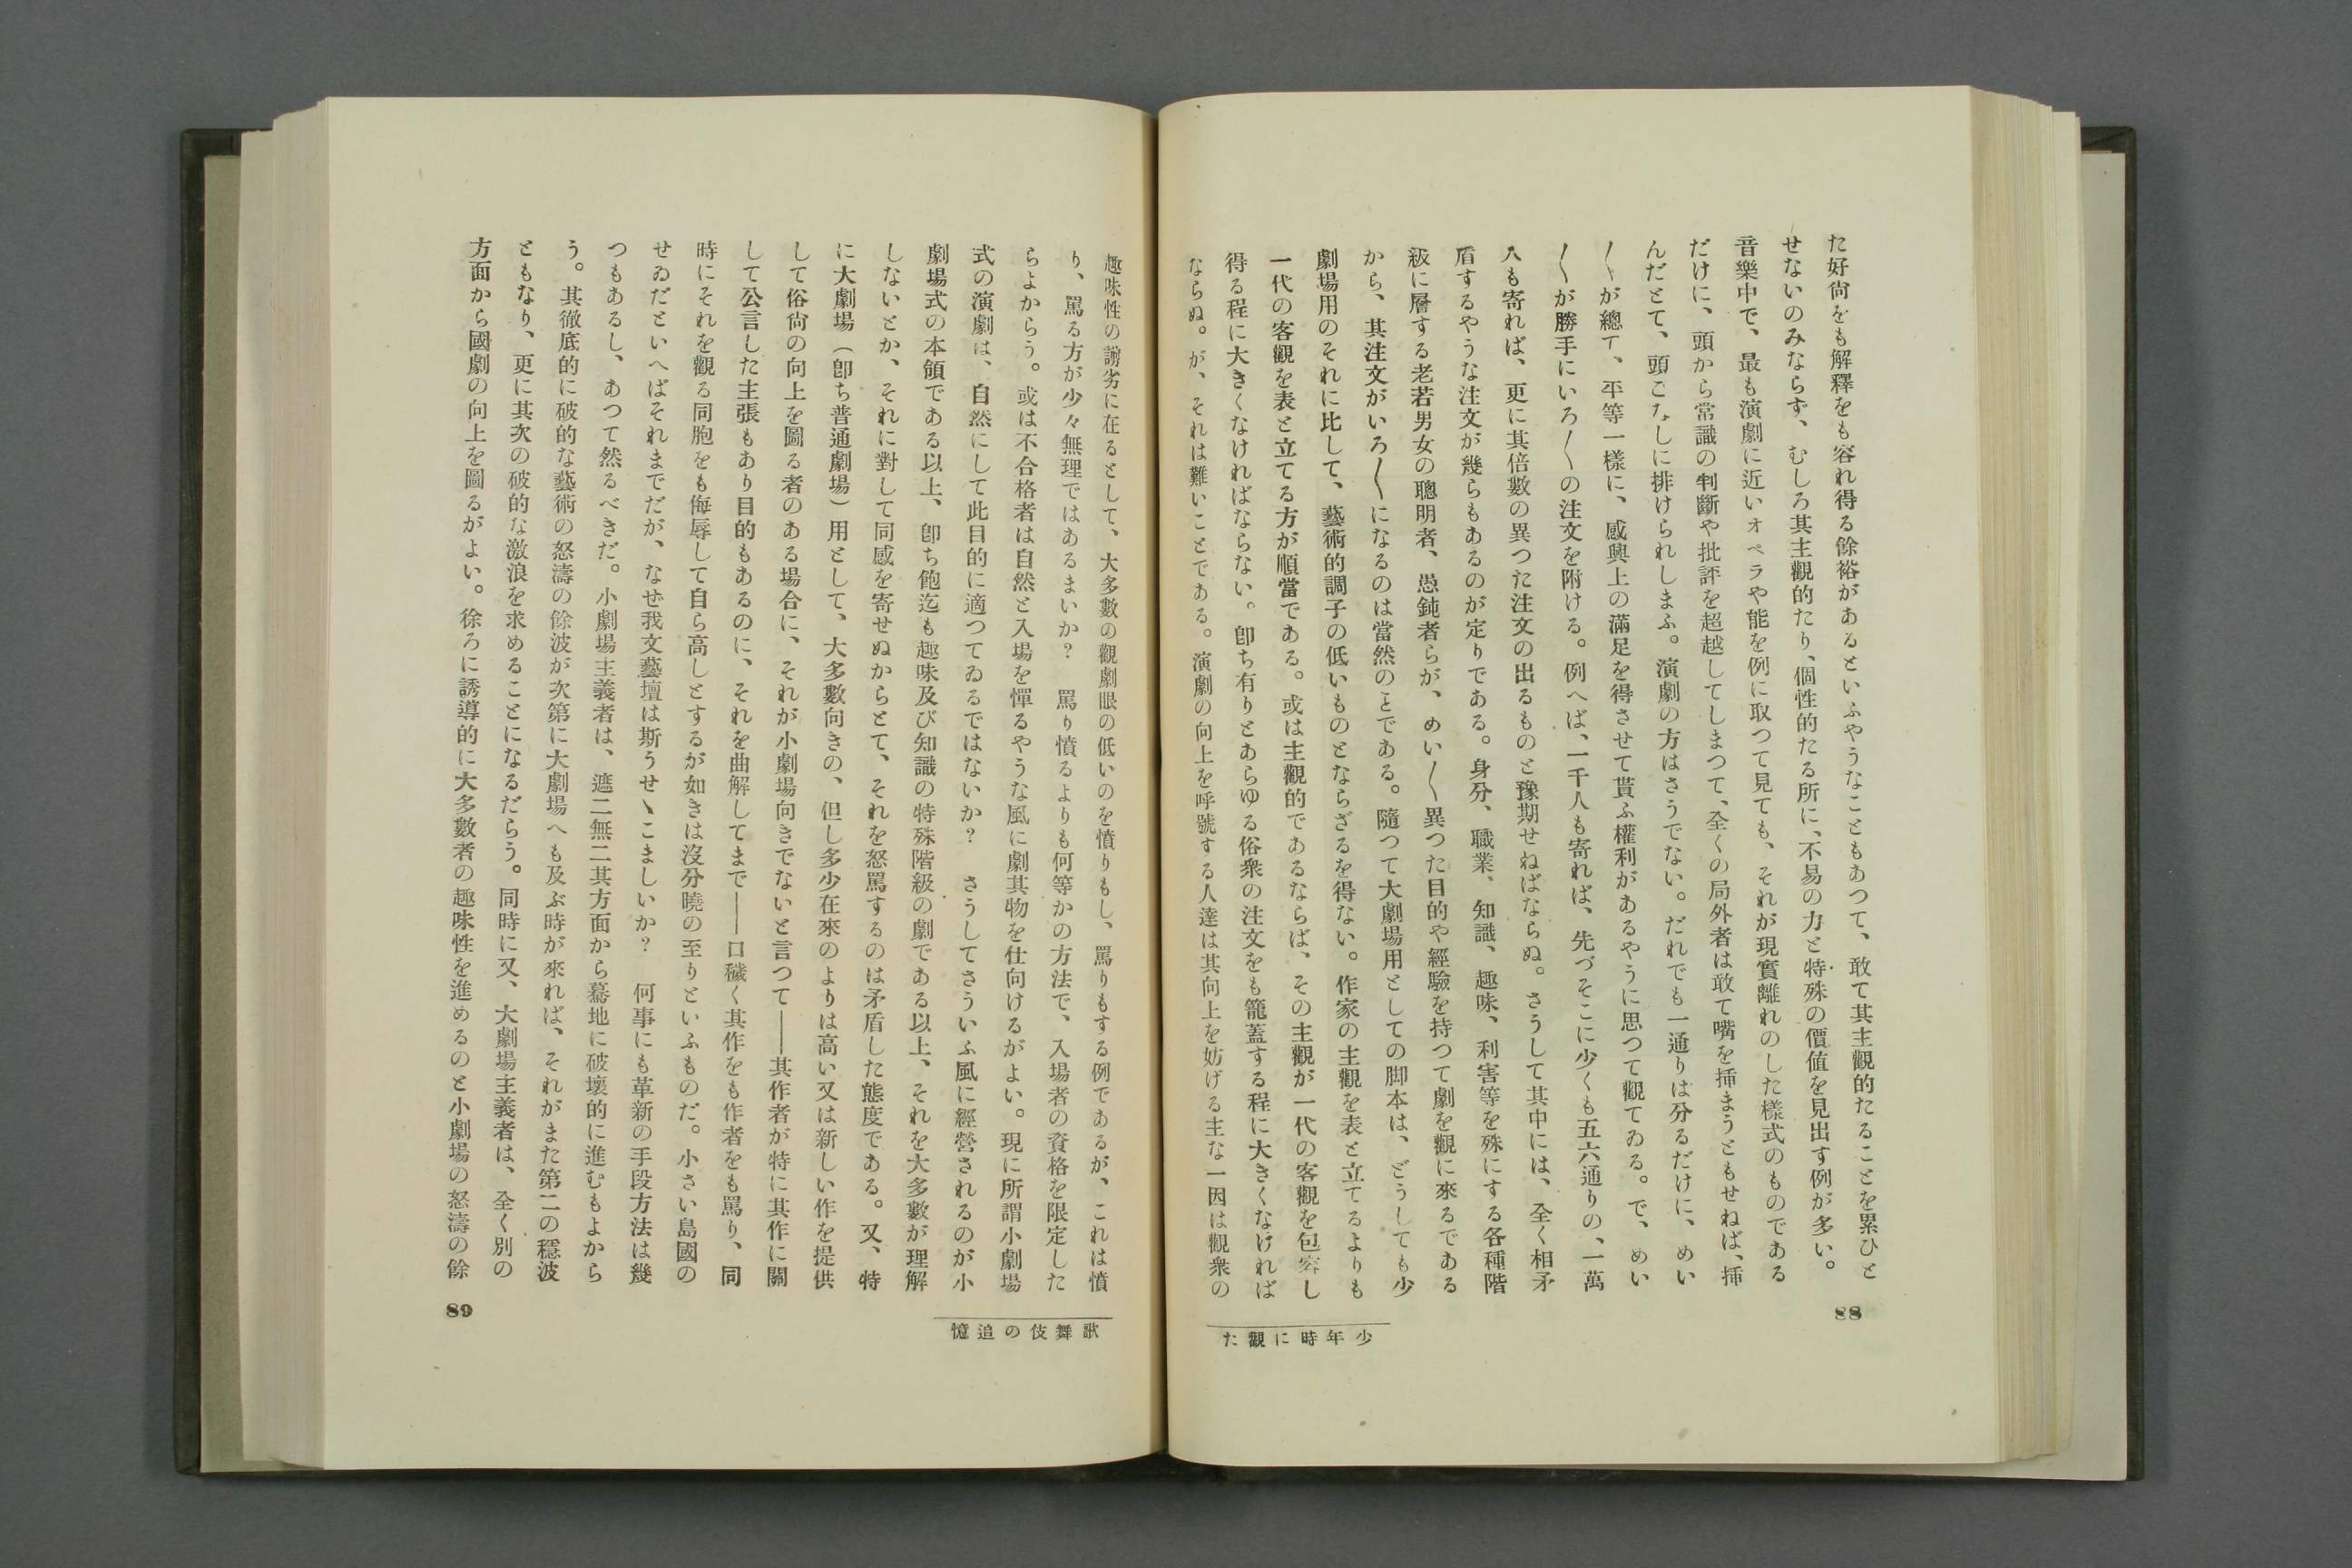 た好尙をも解釋をも容れ得る餘裕があるといふやうなこともあつて、敢て其主觀的たることを累ひと
せないのみならず、むしろ其主觀的たり、個性的たる所に、不易の力と特殊の價値を見出す例が多い。
音樂中で、最も演劇に近いオペラや能を例に取つて見ても、それが現實離れのした樣式のものである
だけに、頭から常識の判斷や批評を超越してしまつて、全くの局外者は敢て嘴を揷まうともせねば、揷
んだとて、頭ごなしに排けられしまふ。演劇の方はさうでない。だれでも一通りは分るだけに、めい
〱が總て、平等一樣に、感興上の滿足を得させて貰ふ權利があるやうに思つて觀てゐる。で、めい
〱が勝手にいろ〱の注文を附ける。例へば、一千人も寄れば、先づそこに少くも五六通りの、一萬
人も寄れば、更に其倍數の異つた注文の出るものと豫期せねばならぬ。さうして其中には、全く相矛
盾するやうな注文が幾らもあるのが定りである。身分、職業、知識、趣味、利害等を殊にする各種階
級に層する老若男女の聰明者、愚鈍者らが、めい〱異つた目的や經驗を持つて劇を觀に來るである
から、其注文がいろ〱になるのは當然のことである。隨つて大劇場用としての脚本は、どうしても少
劇場用のそれに比して、藝術的調子の低いものとならざるを得ない。作家の主觀を表と立てるよりも
一代の客觀を表と立てる方が順當である。或は主觀的であるならば、その主觀が一代の客觀を包容し
得る程に大きくなければならない。卽ち有りとあらゆる俗衆の注文をも籠蓋する程に大きくなければ
ならぬ。が、それは難いことである。演劇の向上を呼號する人達は其向上を妨げる主な一因は觀衆の
88
少年時に觀た
趣味性の謭劣に在るとして、大多數の觀劇眼の低いのを憤りもし、罵りもする例であるが、これは憤
り、罵る方が少々無理ではあるまいか？　罵り憤るよりも何等かの方法で、入場者の資格を限定した
らよからう。或は不合格者は自然と入場を憚るやうな風に劇其物を仕向けるがよい。現に所謂小劇場
式の演劇は、自然にして此目的に適つてゐるではないか？　さうしてさういふ風に經營されるのが小
劇場式の本領である以上、卽ち飽迄も趣味及び知識の特殊階級の劇である以上、それを大多數が理解
しないとか、それに對して同感を寄せぬからとて、それを怒罵するのは矛盾した態度である。又、特
に大劇場（卽ち普通劇場）用として、大多數向きの、但し多少在來のよりは高い又は新しい作を提供
して俗尙の向上を圖る者のある場合に、それが小劇場向きでないと言つて――其作者が特に其作に關
して公言した主張もあり目的もあるのに、それを曲解してまで――口穢く其作をも作者をも罵り、同
時にそれを觀る同胞をも侮辱して自ら高しとするが如きは沒分曉の至りといふものだ。小さい島國の
せゐだといへばそれまでだが、なぜ我文藝壇は斯うせゝこましいか？　何事にも革新の手段方法は幾
つもあるし、あつて然るべきだ。小劇場主義者は、遮二無二其方面から驀地に破壞的に進むもよから
う。其徹底的に破的な藝術の怒濤の餘波が次第に大劇場へも及ぶ時が來れば、それがまた第二の穩波
ともなり、更に其次の破的な激浪を求めることになるだらう。同時に又、大劇場主義者は、全く別の
方面から國劇の向上を圖るがよい。徐ろに誘導的に大多數者の趣味性を進めるのと小劇場の怒濤の餘
89
歌舞伎の追憶